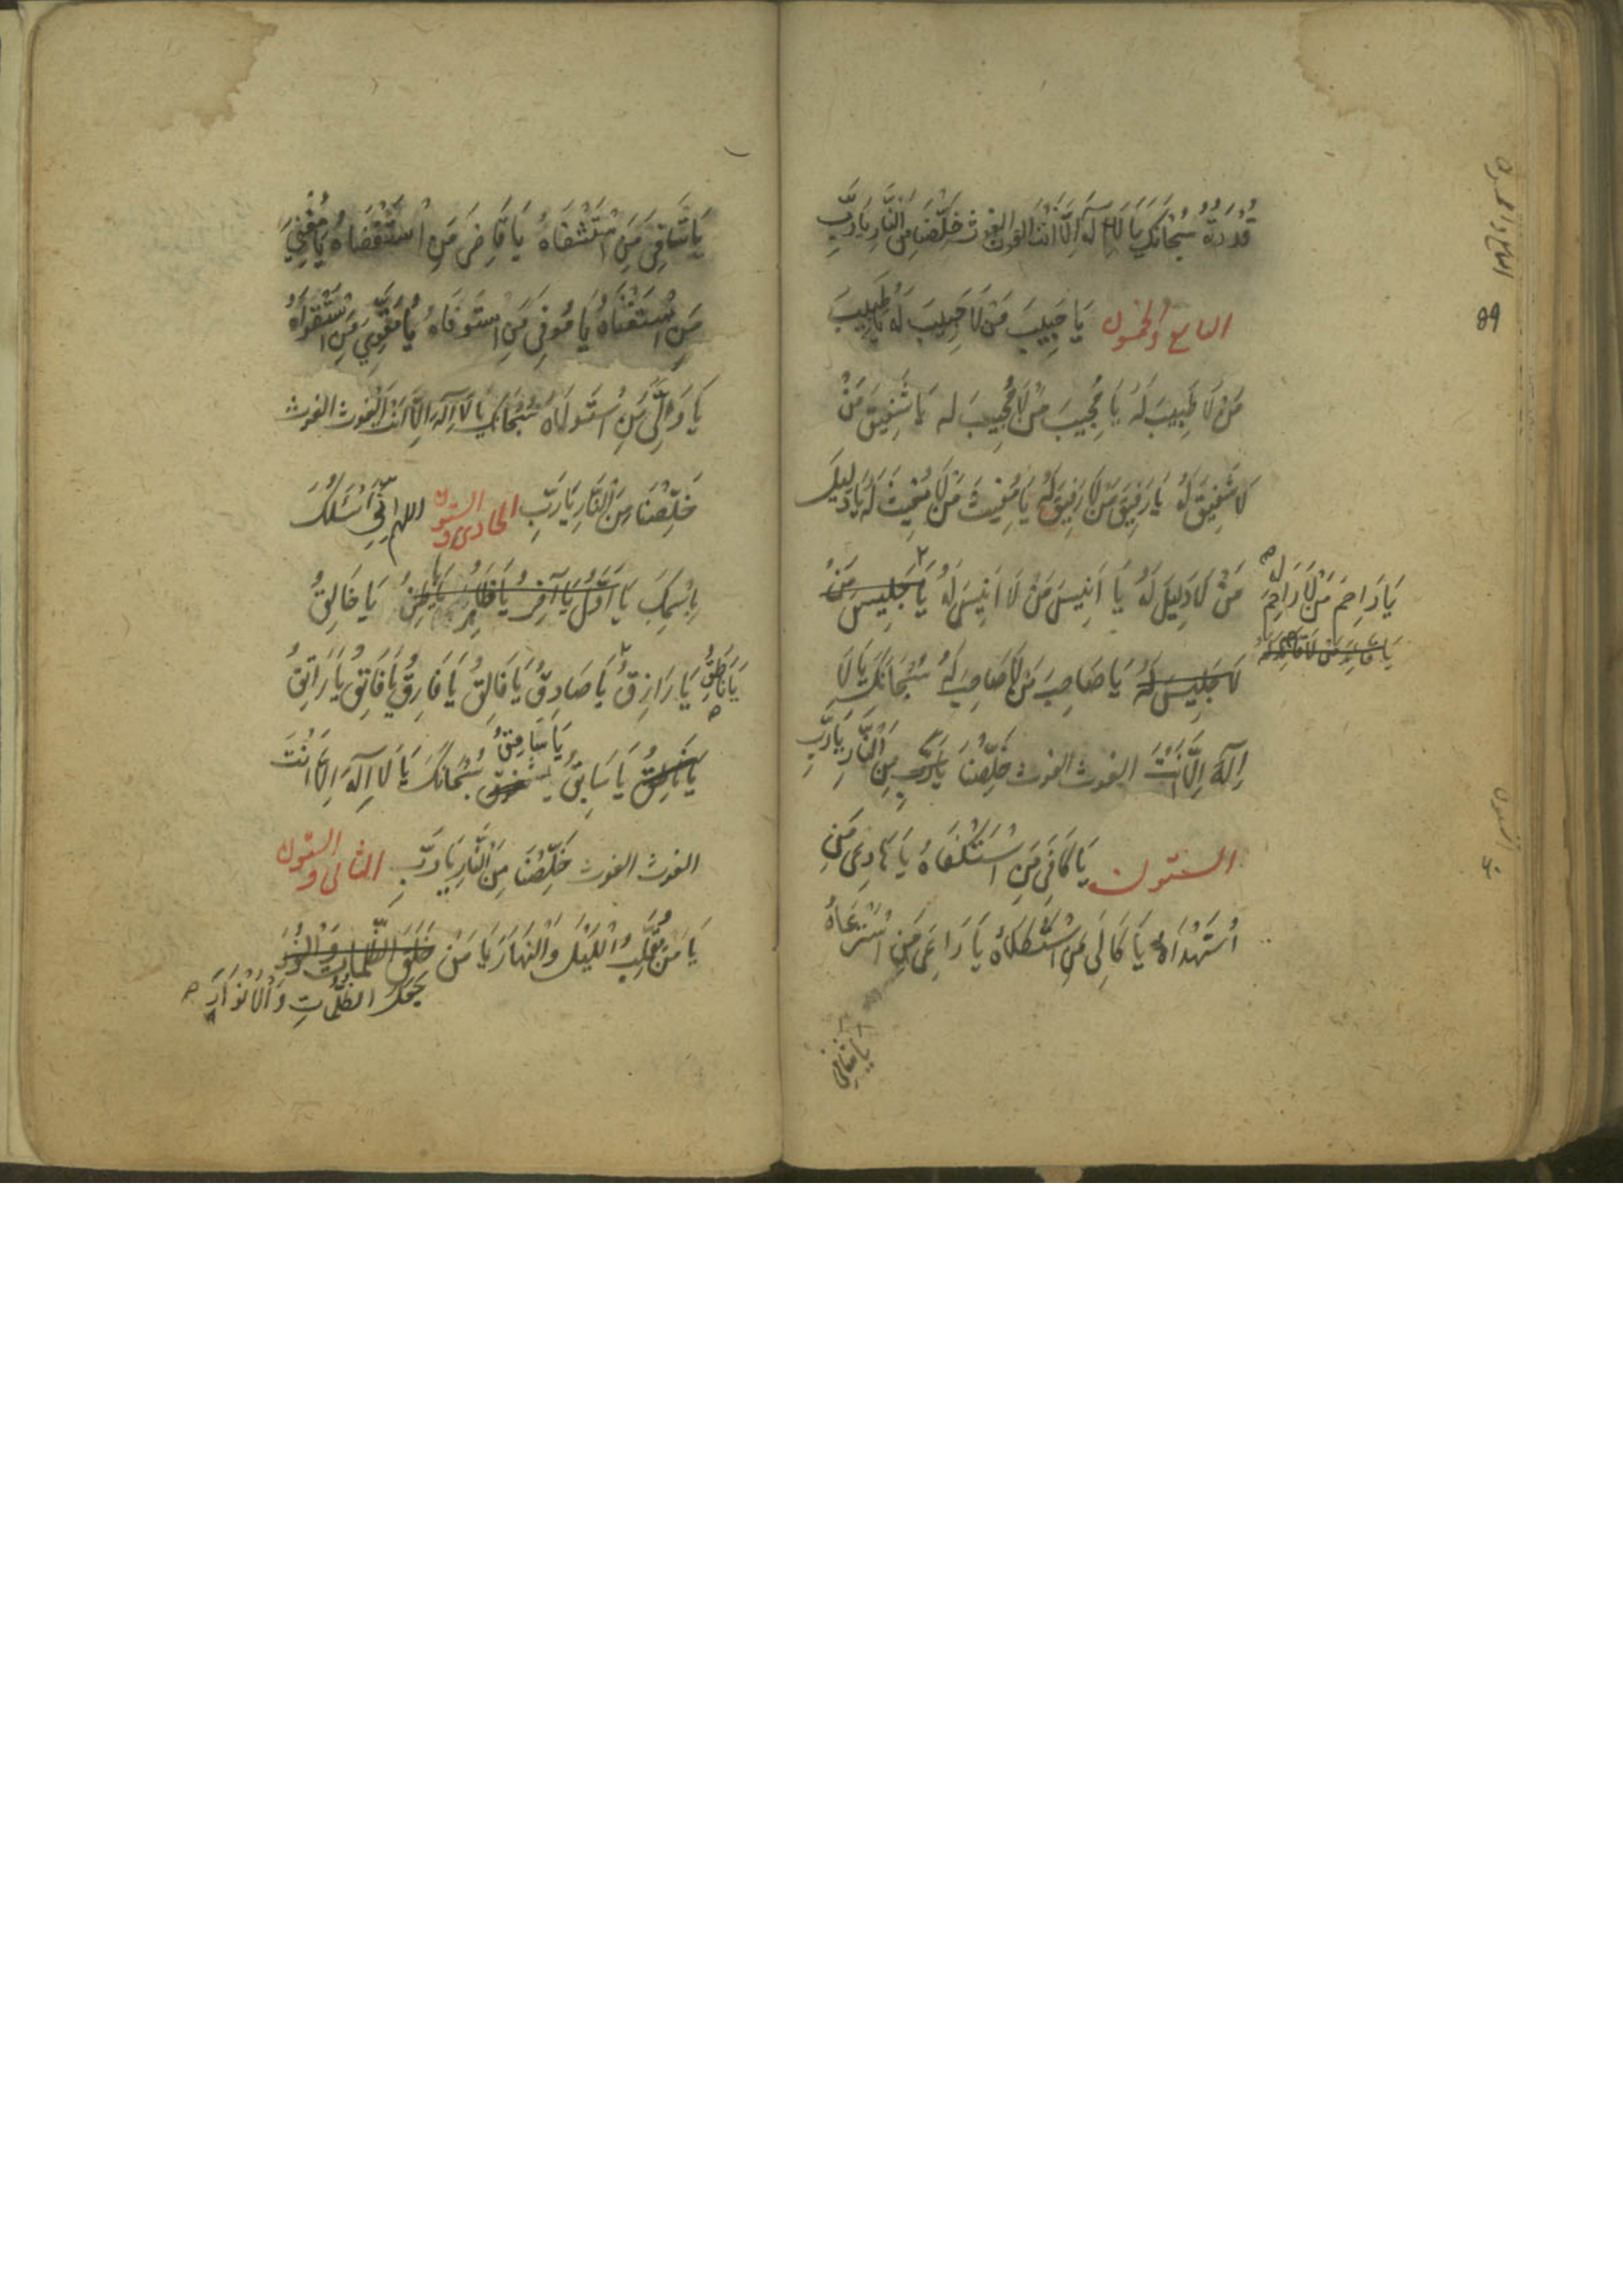 قُدْرَتُهُ سُبْحَانَكَ يَا لَا اِلٰهَ اِلَّا اَنْتَ الغوث الغوث خَلِّصْنَا مِنَ النَّارِ يَا رَبِّ
التاسع والخمسون يَا حَبِيبَ مَنْ لَا حَبِيبَ لَهُ يَا طَبِيبَ
مَنْ لَا طَبِيبَ لَهُ يَا مُجِيبَ مَنْ لَا مُجِيبَ لَه يَا شَفِيقَ مَنْ
لَا شَفِيقَ لَهُ يَا رَفِيقَ مَنْ لَا رَفِيقَ لَهُ يَا مُغِيثَ مَنْ لَا مُغِيثَ لَهُ يَا دَلِيلَ
مَنْ لَا دَلِيلَ لَهُ يَا اَنِيسَ مَنْ لَا اَنِيسَ لَهُ يَا جَلِيسَ مَنْ
يَا رَاحِمَ مَنْ لَا رَاحِمَ لَه
يَا قَائِدَ مَنْ لَا قَائِدَ لَهُ
لَا جَلِيسَ لَهُ يَا صَاحِبَ مَنْ لَا صَاحِبَ لَهُ سُبْحَانَكَ يَا لَا
اِلٰهَ اِلَّا اَنْتَ الغوث الغوث خَلِّصْنَا يَا رَبِّ مِنَ النَّارِ يَا رَبِّ
الستون يَا كَافِيَ مَنِ اسْتَكْفَاهُ يَا هَادِيَ مَنِ
اسْتَهْدَاهُ يَا كَالِيَ مَنِ اسْتَكْلَاهُ يَا رَاعِيَ مَنِ اسْتَرْعَاهُ
يا شافي
89
يَا شَافِيَ مَنِ اسْتَشْفَاهُ يَا قَاضِيَ مَنِ اسْتَقْضَاهُ يَا مُغْنِيَ
مَنِ اسْتَغْنَاهُ يَا مُوفِيَ مَنِ اسْتَوْفَاهُ يَا مُقَوِّيَ مَنِ اسْتَقْوَاهُ
يَا وَلِيَّ مَنِ اسْتَوْلَاهُ سُبْحَانَكَ يَا لَا اِلٰهَ اِلَّا اَنْتَ الغوث الغوث
خَلِّصْنَا مِنَ النَّارِ يَا رَبِّ الحادى والستون اللهم اِنِّي اَسْئَلُكَ
بِاسْمِكَ يَا اَوَّلُ يَا آخِرُ يَا ظَاهِرُ يَا بَاطِنُ يَا خَالِقُ
يَا نَاطِقُ يَا رَازِقُ يَا صَادِقُ يَا فَالِقُ يَا فَارِقُ يَا فَاتِقُ يَا رَاتِقُ
يَا سَامِقُ
يَا سَابِقُ سُبْحَانَكَ يَا لَا اِلٰهَ اِلَّا اَنْتَ
الغوث الغوث خَلِّصْنَا مِنَ النَّارِ يَا رَبِّ الثانى والستون
يَا مَنْ يُقَلِّبُ اللَّيْلَ وَالنَّهَارَ يَا مَنْ خَلَقَ الظُّلُمَاتِ وَالنُّورَ
جَعَلَ الظُّلُمَاتِ وَالْاَنْوَارَ